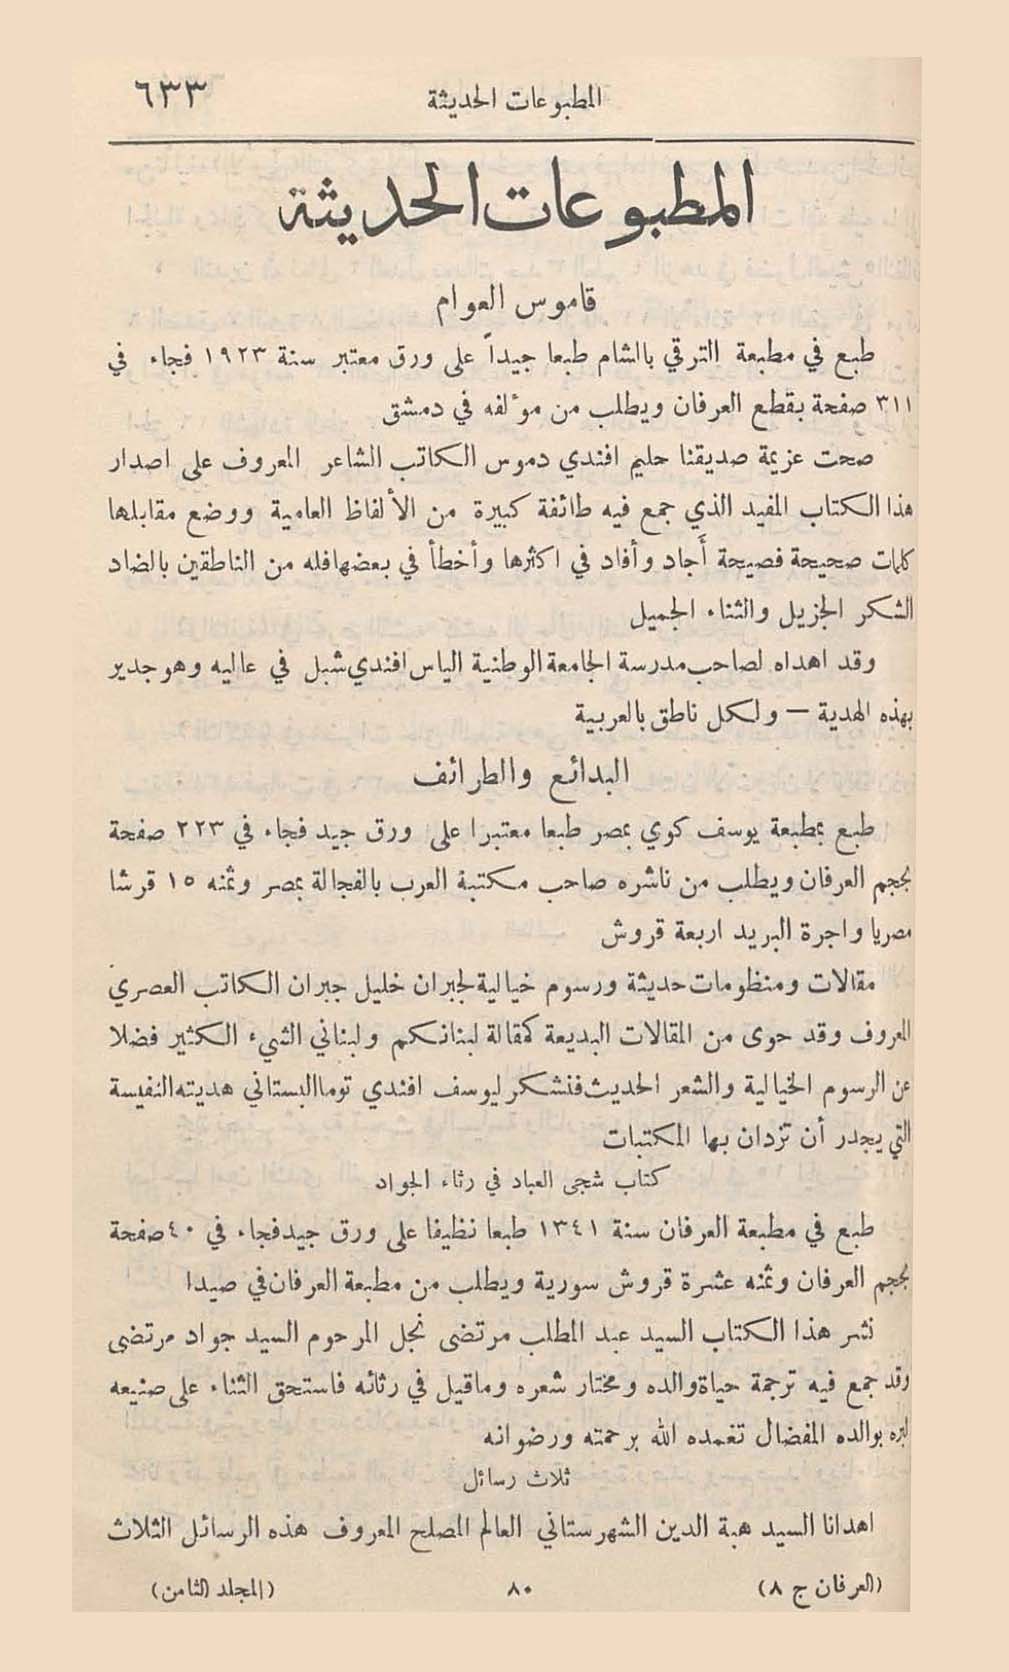 المطبوعات الحديثة ٦٣٣
المطبوعات الحديثة
قاموس العوام
طبع في مطبعة الترقي بالشام طبعا جيداً على ورق معتبر سنة ١٩٢٣ فجاء في
٣١١ صفحة بقطع العرفان ويطلب من مؤلفه في دمشق
صحت عزيمة صديقنا حليم افندي دموس الكاتب الشاعر المعروف على اصدار
هذا الكتاب المفيد الذي جمع فيه طائفة كبيرة من الألفاظ العامية ووضع مقابلها
كلمات صحيحة فصيحة أَجاد وأفاد في اكثرها وأخطأ في بعضها فله من الناطقين بالضاد
الشكر الجزيل والثناء الجميل
وقد اهداه لصاحب مدرسة الجامعة الوطنية الياس افندي شبل في عاليه وهو جدير
بهذه الهدية — ولكل ناطق بالعربية
البدائع والطرائف
طبع بمطبعة يوسف كوي بمصر طبعا معتبرا على ورق جيد فجاء في ٢٢٣ صفحة
بحجم العرفان ويطلب من ناشره صاحب مكتبة العرب بالفجالة بمصر وثمنه ١٥ قرشا
مصريا واجرة البريد اربعة قروش
مقالات ومنظومات حديثة ورسوم خيالية لجبران خليل جبران الكاتب العصري
المعروف وقد حوى من المقالات البديعة كمقالة لبنانكم ولبناني الشيء الكثير فضلا
عن الرسوم الخيالية والشعر الحديث فنشكر ليوسف افندي توما البستاني هديته النفيسة
التي يجدر أن تزدان بها المكتبات
كتاب شجى العباد في رثاء الجواد
طبع في مطبعة العرفان سنة ١٣٤١ طبعا نظيفا على ورق جيد فجاء في ٤٠ صفحة
بحجم العرفان وثمنه عشرة قروش سورية ويطلب من مطبعة العرفان في صيدا
نشر هذا الكتاب السيد عبد المطلب مرتضى نجل المرحوم السيد جواد مرتضى
وقد جمع فيه ترجمة حياة والده ومختار شعره وما قيل في رثائه فاستحق الثناء على صنيعه
لبره بوالده المفضال تغمده الله برحمته ورضوانه
ثلاث رسائل
اهدانا السيد هبة الدين الشهرستاني العالم المصلح المعروف هذه الرسائل الثلاث
(العرفان ج ٨) ٨٠ (المجلد الثامن)